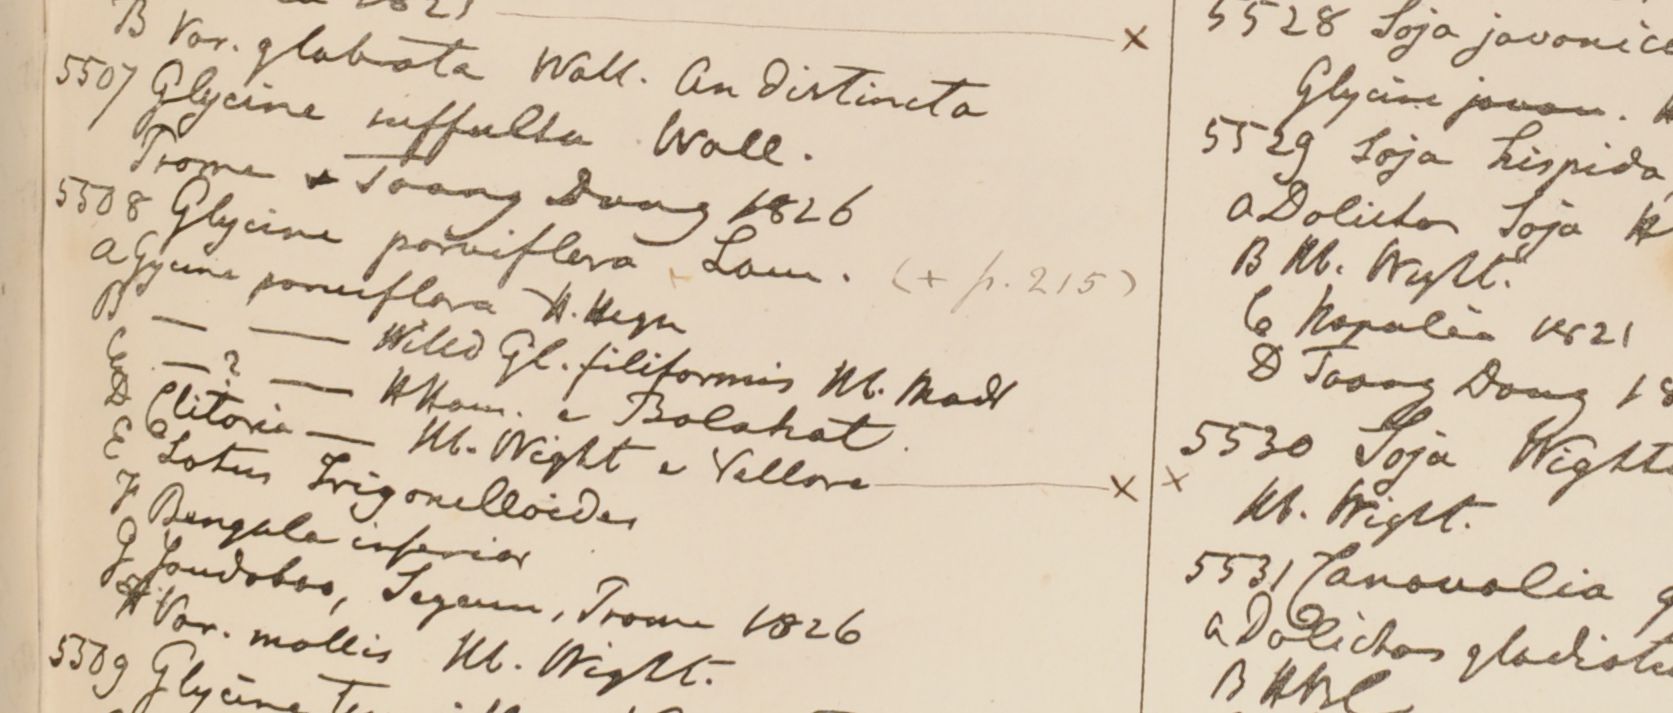 1821
B Var. glabrata Wall. An distincta
5507 Glycine suffulta Wall.
Prome + Taong Dong 1826
5508 Glycine parviflora Lam. (+ p. 215)
a Gycine parviflora H. Heyn
B — — Willd Gl. filiformis Hb. Madr
C — ? — HHam. e Balahat.
D Clitoria — Hb. Wight e Vellore
E Lotus Trigonelloides
F Bengala inferior
G Segaen, Prome 1826
H Var. mollis Hb. Wight.
5509 Glycine
5528 Soja javanica
Glycine javan.
5529 Soja hispida,
a Dolichos Soja H
B Hb. Wight.
C Napalia 1821
D Taong Dong 18
5530 Soja Wighti
Hb. Wight.
5531 Canavalia g
a Dolichos gladiatu
B HBC